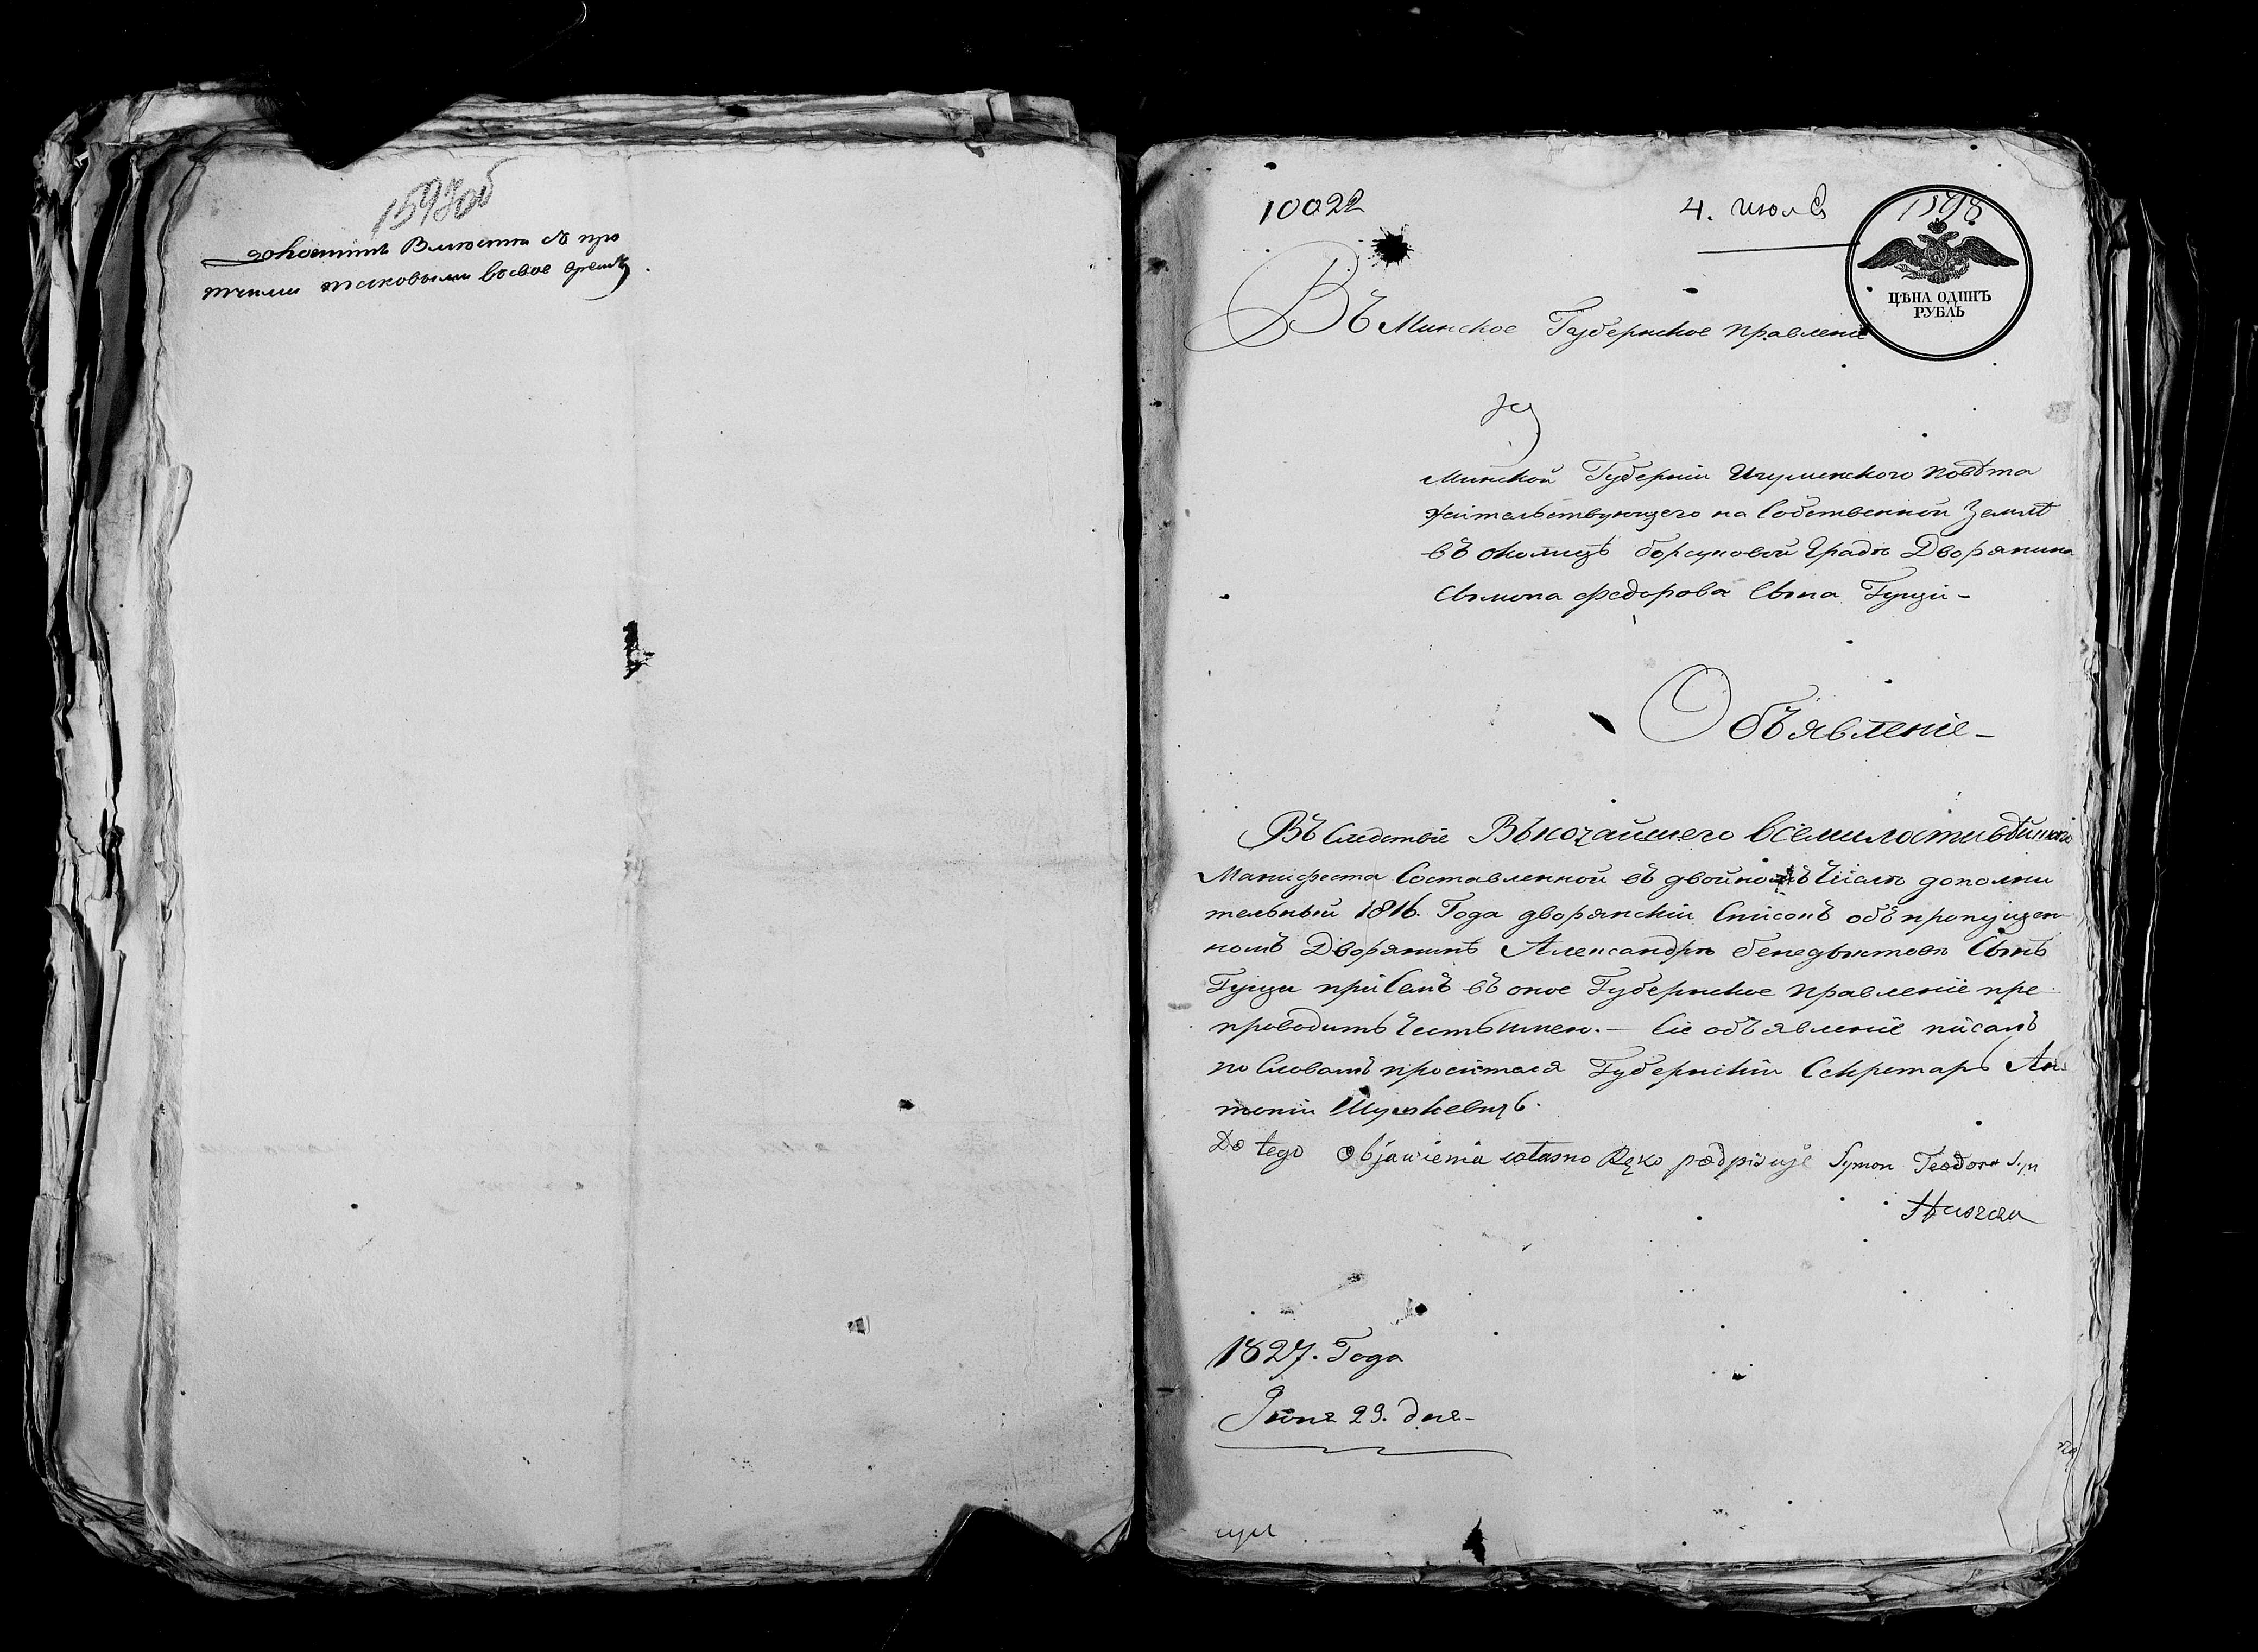 доложить Вместе съ про
тчими таковыми восвое время
10022
4. июля
1598
ЦѢНА ОДИНЪ
РУБЛЬ
Въ Минское Губернское Правленіе
Минской Губерніи Игуменского повѣта
жительствующего на Собственной Землѣ
въ околицѣ борсуковой Градѣ Дворянина
Сымона федорова Сына Гущи -
Объявленіе -
Въ Следствіе Высочайшего всемилостивѣйшаго
Манифеста Составленной въ двойномъ числѣ дополни
тельный 1816. Года дворянскій Списокъ объ пропущен
номъ Дворянинѣ Александрѣ бенедыктовѣ Сынѣ
Гущи при Семъ въ оное Губернское правленіе пре
проводить честь имею. — Сіе объявленіе писалъ
по Словамъ просителя Губернскій Секретарь Ан
тоній
Do tego objawienia własno Ręko podpisuje Symon Teodora Syn
Huszcza
1827. Года
Іюня 29. дня -